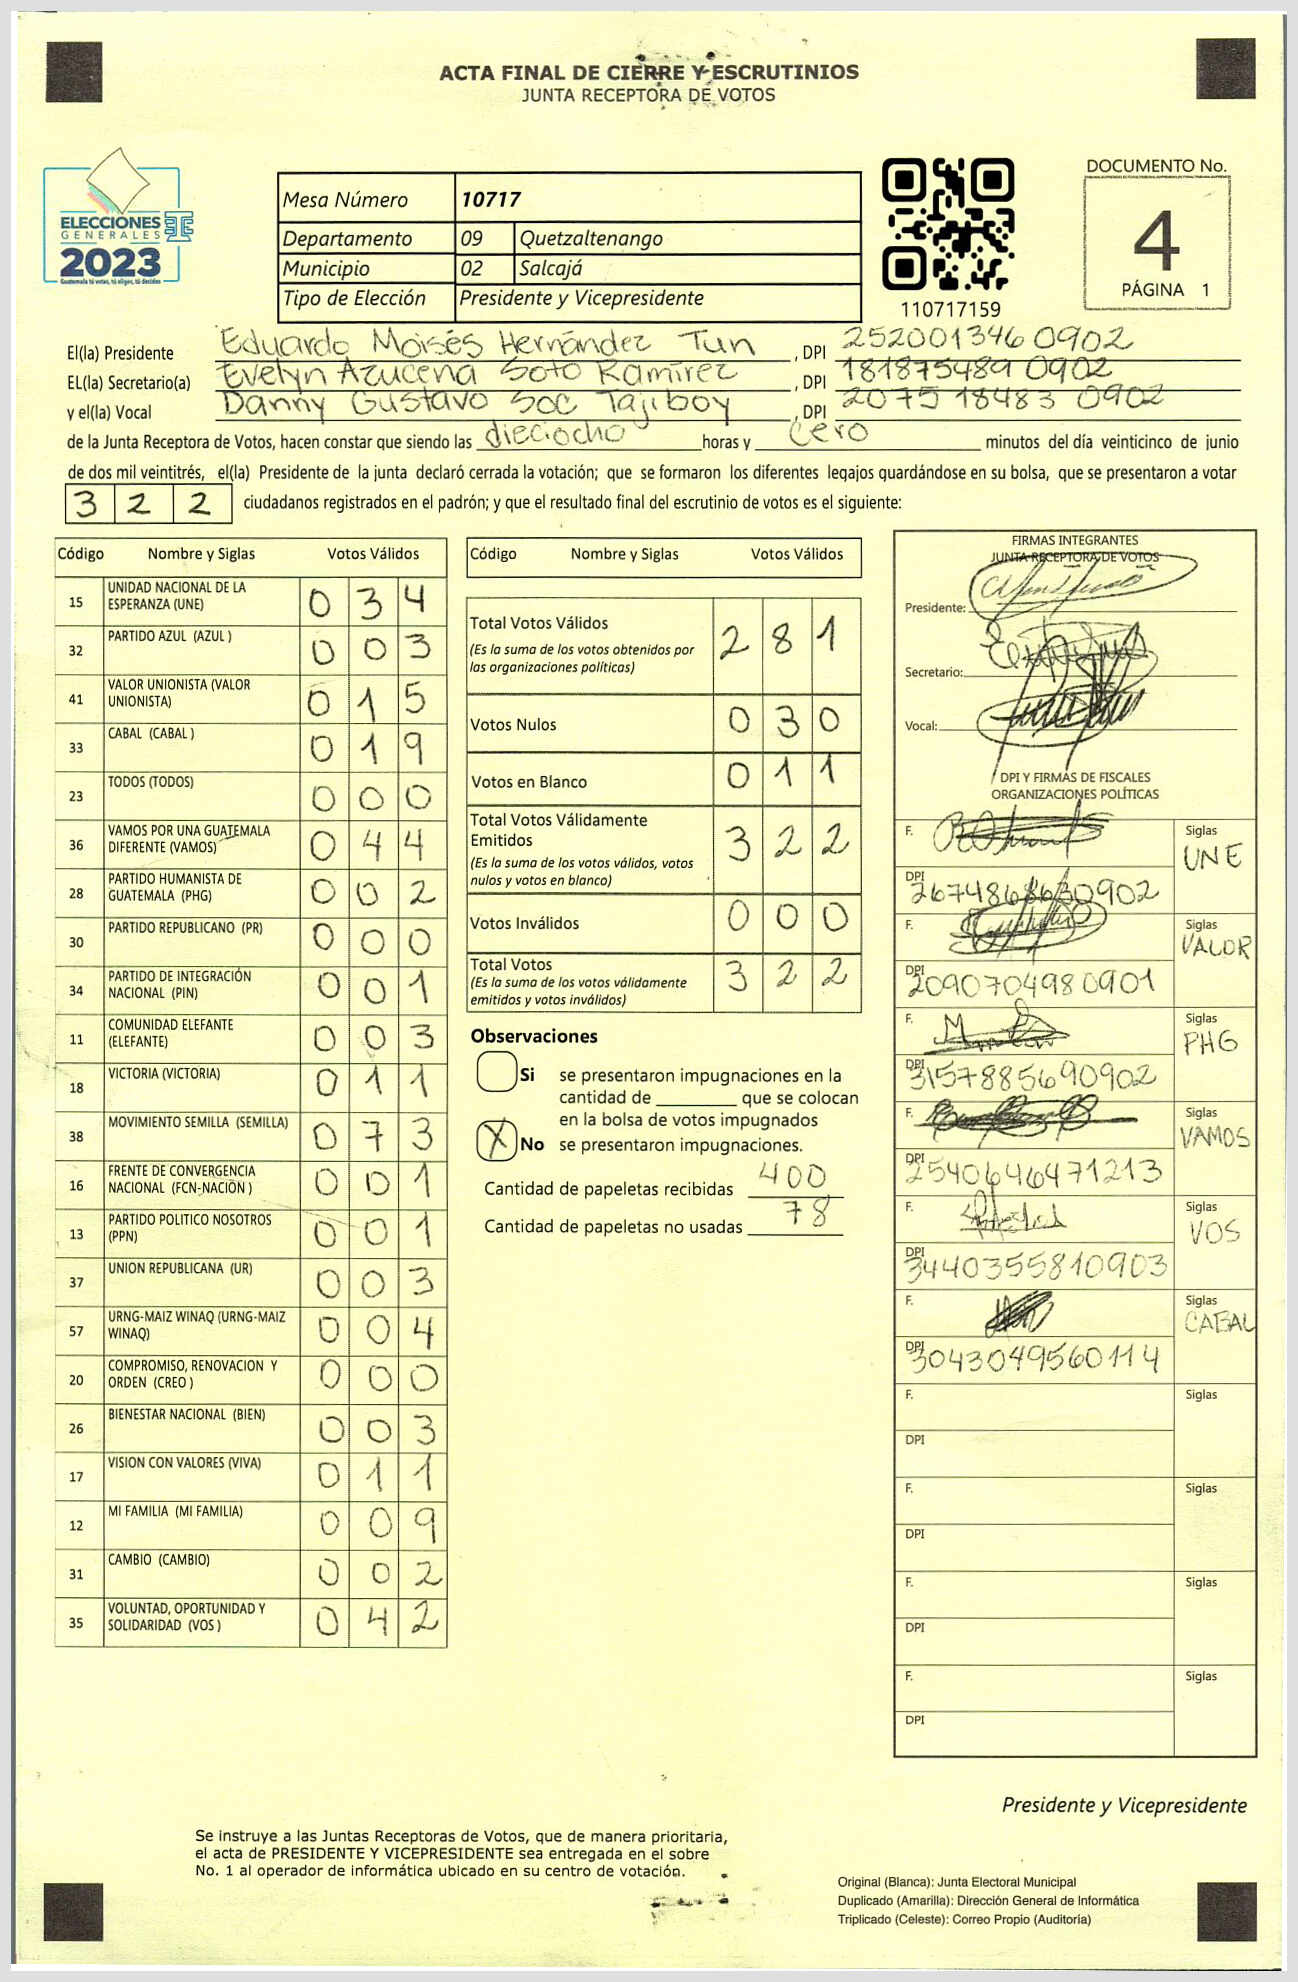 ACTA FINAL DE CIERRE Y ESCRUTINIOS
JUNTA RECEPTORA DE VOTOS
ELECCIONES
GENERALES
2023
Guatemala tú votas, tú eliges, tú decides
Mesa Número 10717
Departamento 09 Quetzaltenango
Municipio 02 Salcajá
Tipo de Elección Presidente y Vicepresidente
110717159
DOCUMENTO No.
4
PÁGINA 1
El(la) Presidente Eduardo Moisés Hernández Tun , DPI 252001346 0902
EL(la) Secretario(a) Evelyn Azucena Soto Ramírez , DPI 181875489 0902
y el(la) Vocal Danny Gustavo Soc Tajiboy , DPI 2075 18483 0902
de la Junta Receptora de Votos, hacen constar que siendo las dieciocho horas y cero minutos del día veinticinco de junio
de dos mil veintitrés, el(la) Presidente de la junta declaró cerrada la votación; que se formaron los diferentes legajos quardándose en su bolsa, que se presentaron a votar
3 2 2 ciudadanos registrados en el padrón; y que el resultado final del escrutinio de votos es el siguiente:
Código Nombre y Siglas Votos Válidos
15 UNIDAD NACIONAL DE LA ESPERANZA (UNE) 0 3 4
32 PARTIDO AZUL (AZUL ) 0 0 3
41 VALOR UNIONISTA (VALOR UNIONISTA) 0 1 5
33 CABAL (CABAL ) 0 1 9
23 TODOS (TODOS) 0 0 0
36 VAMOS POR UNA GUATEMALA DIFERENTE (VAMOS) 0 4 4
28 PARTIDO HUMANISTA DE GUATEMALA (PHG) 0 0 2
30 PARTIDO REPUBLICANO (PR) 0 0 0
34 PARTIDO DE INTEGRACIÓN NACIONAL (PIN) 0 0 1
11 COMUNIDAD ELEFANTE (ELEFANTE) 0 0 3
18 VICTORIA (VICTORIA) 0 1 1
38 MOVIMIENTO SEMILLA (SEMILLA) 0 7 3
16 FRENTE DE CONVERGENCIA NACIONAL (FCN-NACIÓN ) 0 0 1
13 PARTIDO POLITICO NOSOTROS (PPN) 0 0 1
37 UNION REPUBLICANA (UR) 0 0 3
57 URNG-MAIZ WINAQ (URNG-MAIZ WINAQ) 0 0 4
20 COMPROMISO, RENOVACION Y ORDEN (CREO ) 0 0 0
26 BIENESTAR NACIONAL (BIEN) 0 0 3
17 VISION CON VALORES (VIVA) 0 1 1
12 MI FAMILIA (MI FAMILIA) 0 0 9
31 CAMBIO (CAMBIO) 0 0 2
35 VOLUNTAD, OPORTUNIDAD Y SOLIDARIDAD (VOS ) 0 4 2
Código Nombre y Siglas Votos Válidos
Total Votos Válidos 2 8 1
(Es la suma de los votos obtenidos por
las organizaciones políticas)
Votos Nulos 0 3 0
Votos en Blanco 0 1 1
Total Votos Válidamente
Emitidos 3 2 2
(Es la suma de los votos válidos, votos
nulos y votos en blanco)
Votos Inválidos 0 0 0
Total Votos 3 2 2
(Es la suma de los votos válidamente
emitidos y votos inválidos)
Observaciones
Si se presentaron impugnaciones en la
cantidad de ________ que se colocan
en la bolsa de votos impugnados
X No se presentaron impugnaciones.
Cantidad de papeletas recibidas 400
Cantidad de papeletas no usadas 78
FIRMAS INTEGRANTES
JUNTA RECEPTORA DE VOTOS
Presidente:
Secretario:
Vocal:
DPI Y FIRMAS DE FISCALES
ORGANIZACIONES POLÍTICAS
F. Siglas
UNE
DPI 2674868630902
F. Siglas
VALOR
DPI 2090704980901
F. Siglas
PHG
DPI 3157885690902
F. Siglas
VAMOS
DPI 2540646471213
F. Siglas
VOS
DPI 3440355810903
F. Siglas
CABAL
DPI 3043049560114
F. Siglas
DPI
F. Siglas
DPI
F. Siglas
DPI
F. Siglas
DPI
Presidente y Vicepresidente
Se instruye a las Juntas Receptoras de Votos, que de manera prioritaria,
el acta de PRESIDENTE Y VICEPRESIDENTE sea entregada en el sobre
No. 1 al operador de informática ubicado en su centro de votación.
Original (Blanca): Junta Electoral Municipal
Duplicado (Amarilla): Dirección General de Informática
Triplicado (Celeste): Correo Propio (Auditoría)